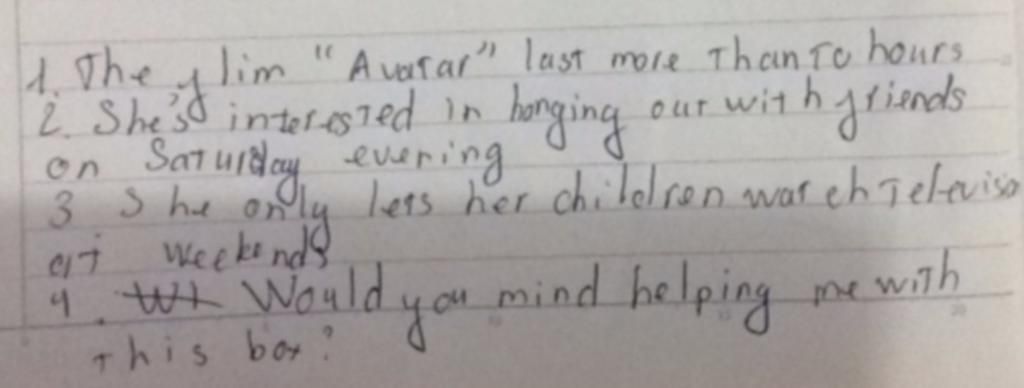 1. The flim "Avatar" last more Than To hours
2. She's interested in hanging out with friends
on Saturday evening
3 She only lets her children watch Televisio
at weekends
4. Would you mind helping me with
this box?